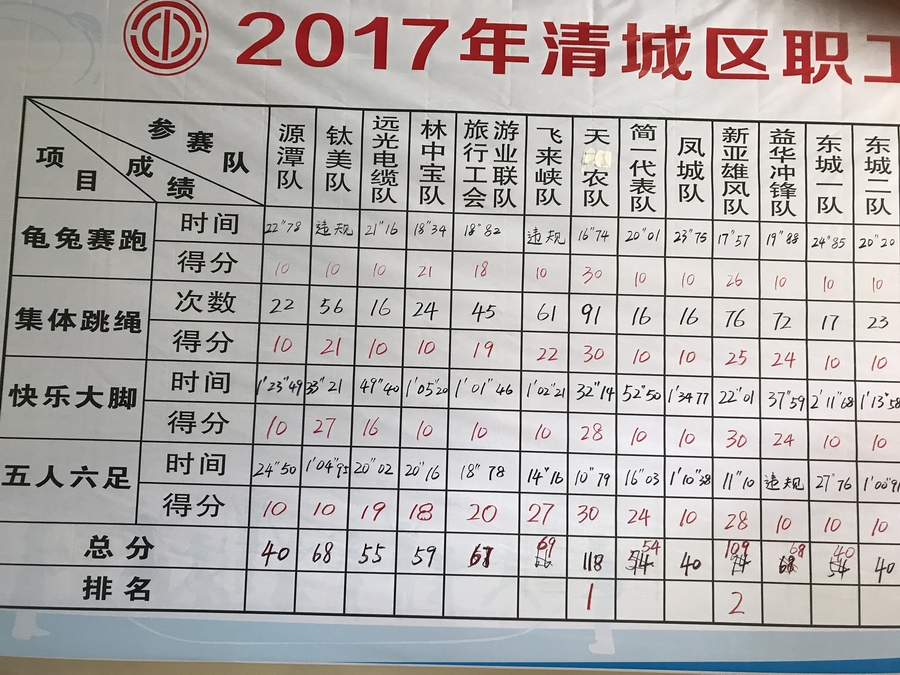 2017年清城区职工
参赛队 成绩 项目 源潭队 钛美队 远光电缆队 林中宝队 旅行工会 游业联队 飞来峡队 天 农队 简一代表队 凤城队 新亚雄风队 益华冲锋队 东城一队 东城二队
龟兔赛跑 时间 22"78 违规 21"16 18"34 18"82 违规 16"74 20"01 23"75 17"57 19"88 24"85 20"20
得分 10 10 10 21 18 10 30 10 10 26 10 10 10
集体跳绳 次数 22 56 16 24 45 61 91 16 16 76 72 17 23
得分 10 21 10 10 19 22 30 10 10 25 24 10 10
快乐大脚 时间 1'23"49 33"21 49"40 1'05"20 1'01"46 1'02"21 32"14 52"50 1'34"77 22"01 37"59 2'11"68 1'13"58
得分 10 27 16 10 10 10 28 10 10 30 24 10 10
五人六足 时间 24"50 1'04"95 20"02 20"16 18"78 14"16 10"79 16"03 1'10"38 11"10 违规 27"76 1'00"91
得分 10 10 19 18 20 27 30 24 10 28 10 10 10
总分 40 68 55 59 67 69 118 54 40 109 68 40 40
排名 1 2